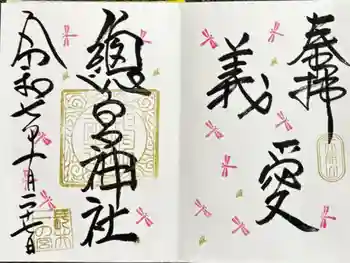 奉拝
義愛
總宮神社
令和七年十月二十七日